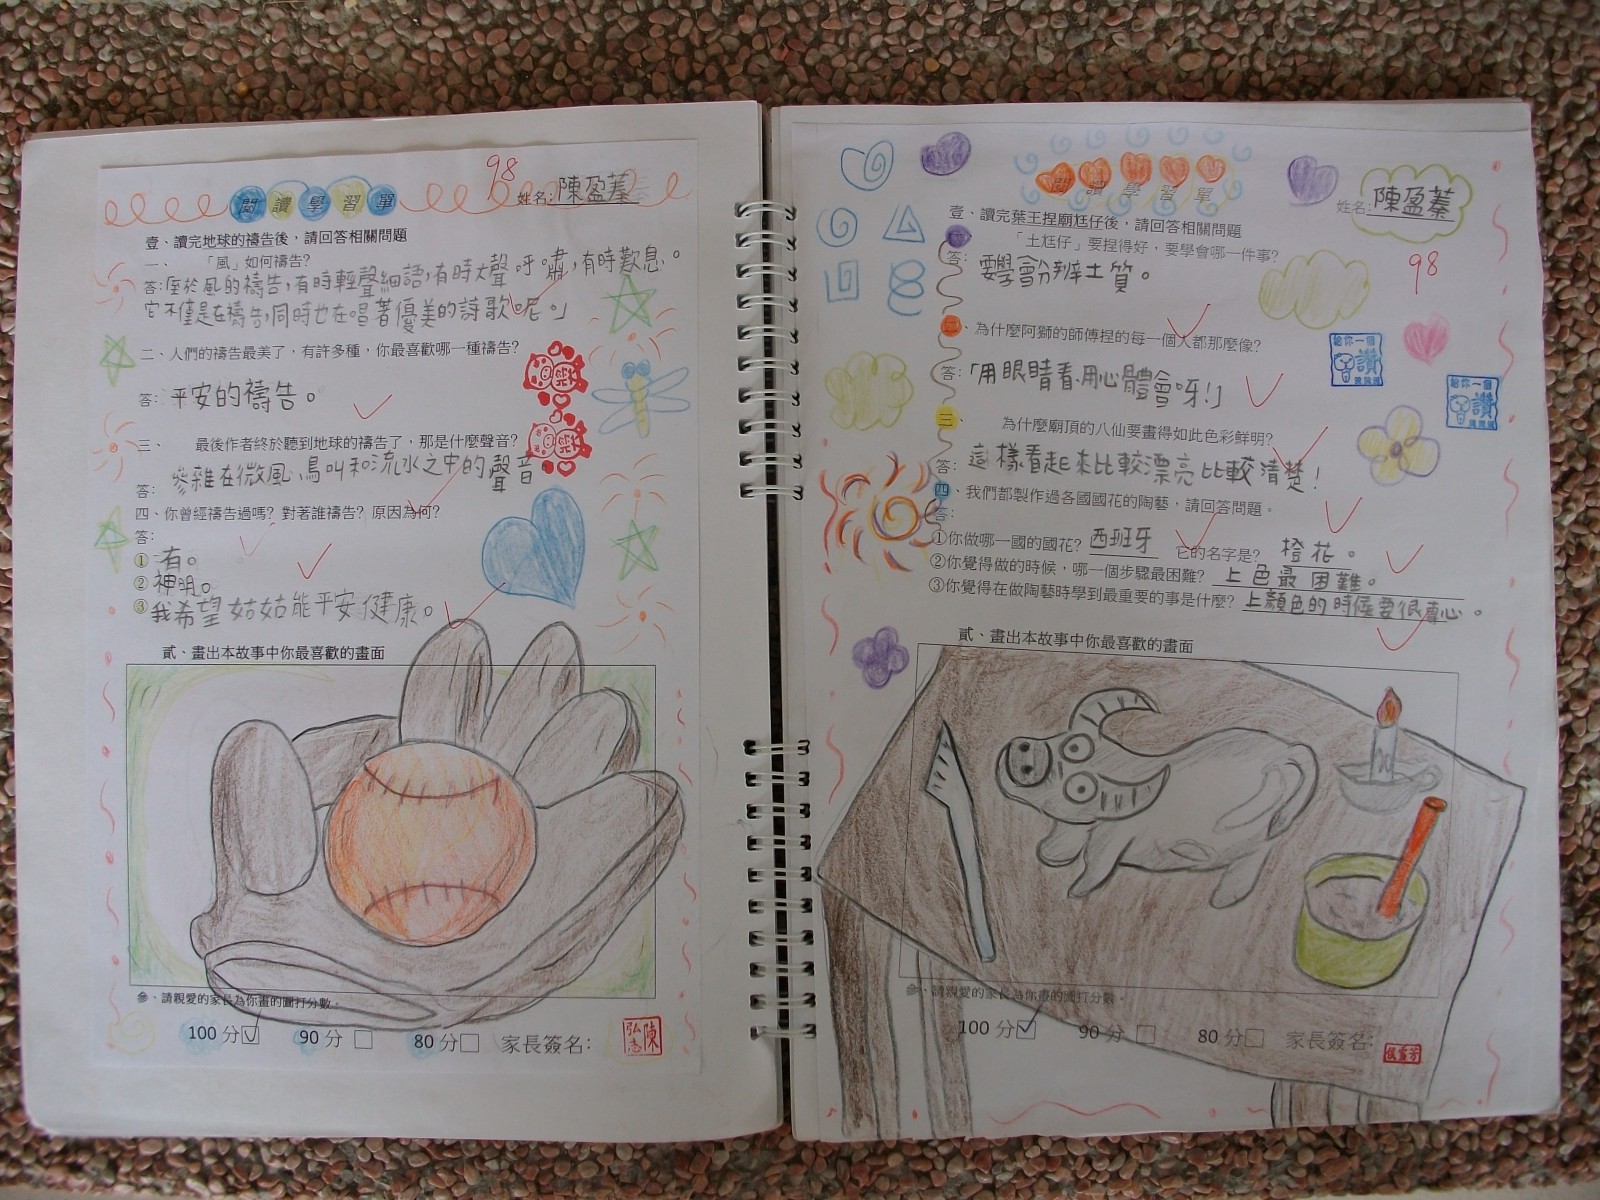 98
閱讀學習單
姓名:陳盈蓁
壹、讀完地球的禱告後，請回答相關問題
一、 「風」如何禱告?
答:至於風的禱告,有時輕聲細語,有時大聲呼嘯,有時歎息。
它不僅是在禱告,同時也在唱著優美的詩歌呢。」
二、人們的禱告最美了，有許多種，你最喜歡哪一種禱告?
答: 平安的禱告。
三、 最後作者終於聽到地球的禱告了，那是什麼聲音?
答: 參雜在微風、鳥叫和流水之中的聲音。
四、你曾經禱告過嗎? 對著誰禱告? 原因為何?
答:
① 有。
② 神明。
③ 我希望姑姑能平安健康。
貳、畫出本故事中你最喜歡的畫面
參、請親愛的家長為你畫的圖打分數。
100 分☑ 90 分□ 80 分□ 家長簽名:
陳弘志
閱讀學習單
姓名:陳盈蓁
98
壹、讀完葉王捏廟尪仔後，請回答相關問題
一、 「土尪仔」要捏得好，要學會哪一件事?
答: 要學會分辨土質。
二、為什麼阿獅的師傅捏的每一個人都那麼像?
答:「用眼睛看、用心體會呀!」
給你一個
讚
給你一個
讚
三、 為什麼廟頂的八仙要畫得如此色彩鮮明?
答: 這樣看起來比較漂亮比較清楚!
四、我們都製作過各國國花的陶藝，請回答問題。
答:
①你做哪一國的國花? 西班牙 它的名字是? 橙花。
②你覺得做的時候，哪一個步驟最困難? 上色最困難。
③你覺得在做陶藝時學到最重要的事是什麼? 上顏色的時候要很專心。
貳、畫出本故事中你最喜歡的畫面
參、請親愛的家長為你畫的圖打分數。
100 分☑ 90 分□ 80 分□ 家長簽名: